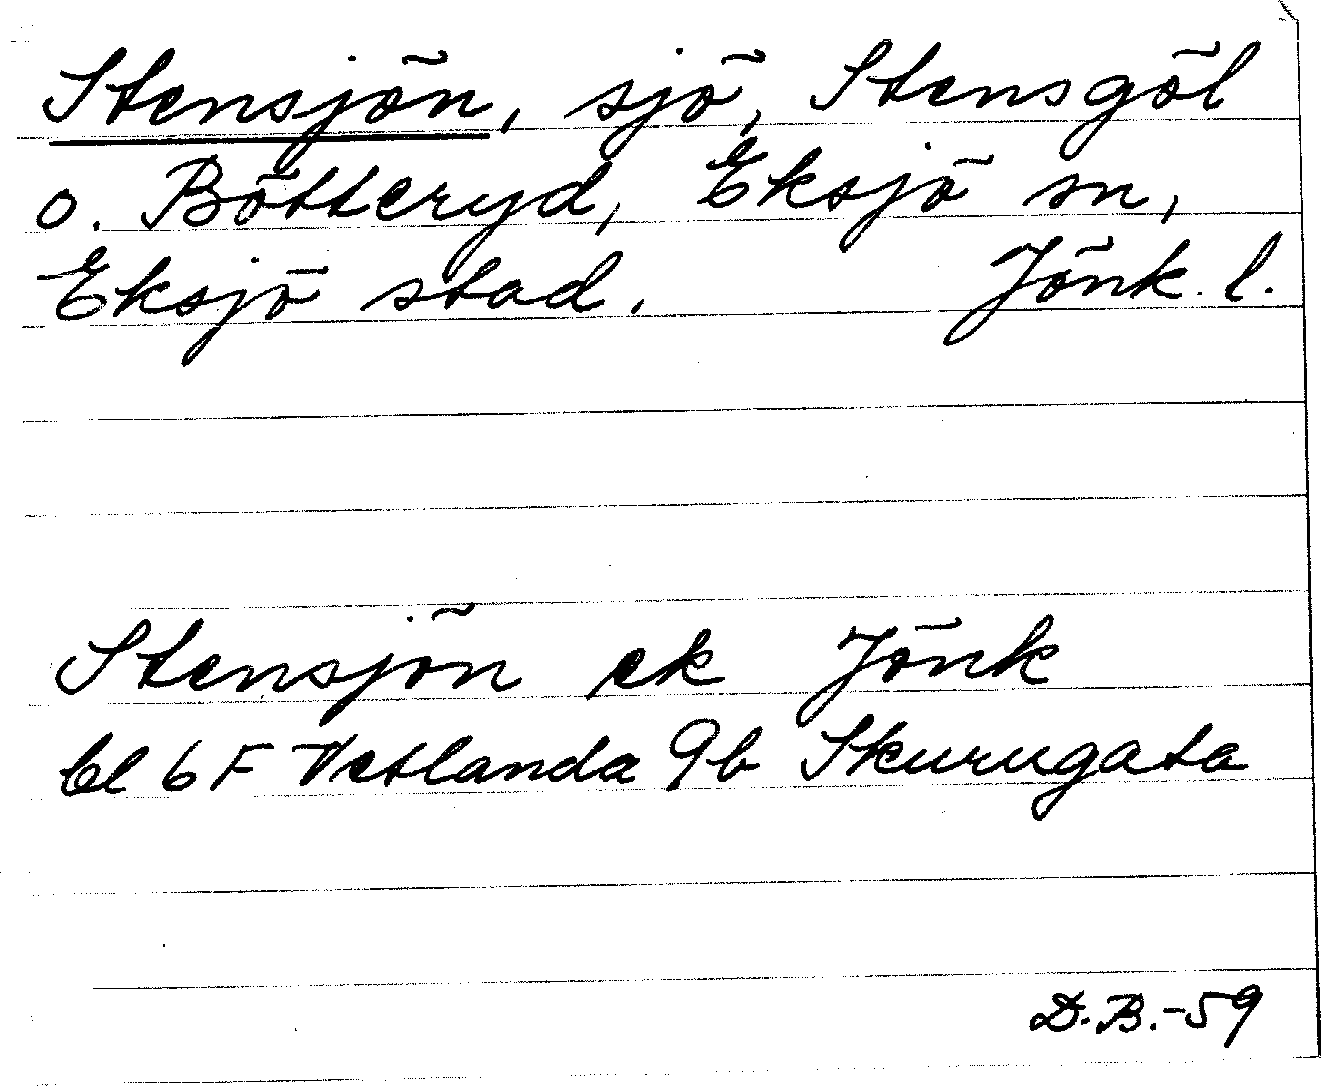 Stensjön, sjö, Stensgöl
o. Bötteryd, Eksjö sn,
Eksjö stad. Jönk. l.
Stensjön ek Jönk
bl 6 F Vetlanda 9b Skurugata
D.B.-59